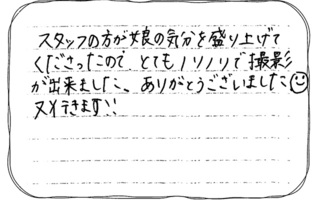 スタッフの方が娘の気分を盛り上げて
くださったので、とてもノリノリで撮影
が出来ました。ありがとうございました
又行きます!!